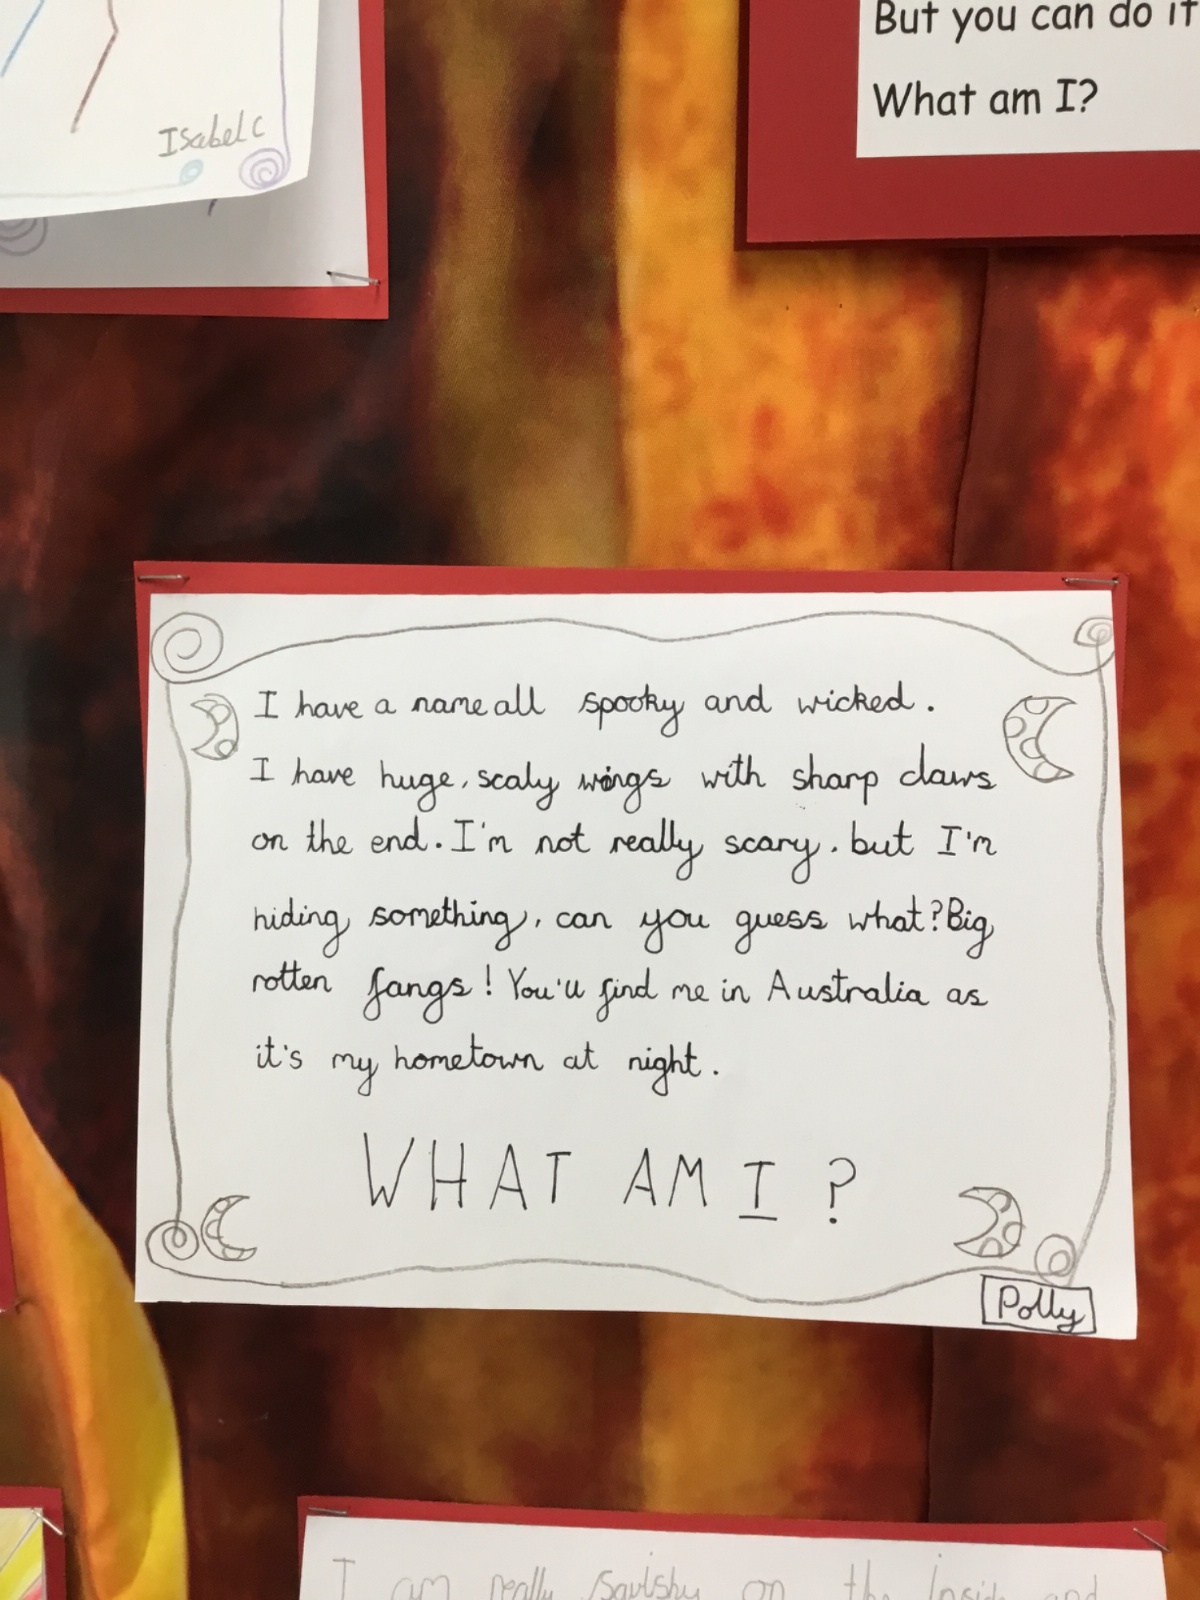 Isabel C
But you can do it
What am I?
I have a name all spooky and wicked.
I have huge, scaly wings with sharp claws
on the end. I'm not really scary. but I'm
hiding something, can you guess what? Big
rotten fangs! You'll find me in Australia as
it's my hometown at night.
WHAT AM I?
Polly
I am really squishy on the inside and